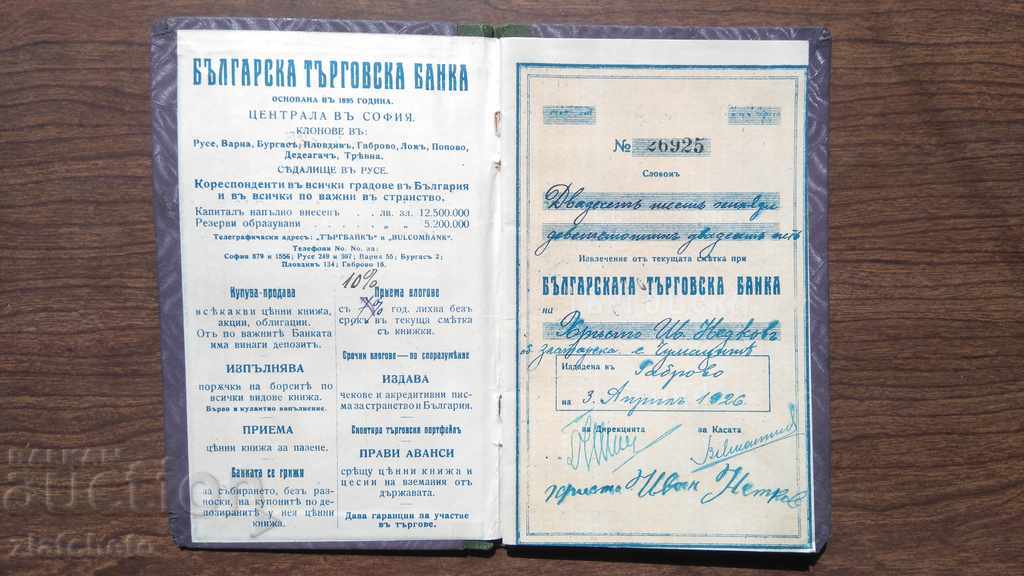 БЪЛГАРСКА ТЪРГОВСКА БАНКА
ОСНОВАНА ВЪ 1895 ГОДИНА.
ЦЕНТРАЛА ВЪ СОФИЯ.
КЛОНОВЕ ВЪ:
Русе, Варна, Бургасъ, Пловдивъ, Габрово, Ломъ, Попово,
Дедеагачъ, Трѣвна.
СѢДАЛИЩЕ ВЪ РУСЕ.
Кореспонденти въ всички градове въ България
и въ всички по важни въ странство.
Капиталъ напълно внесенъ . . лв. зл. 12.500.000
Резерви образувани . . . . „ „ 5.200.000
Телеграфически адресъ: „ТЪРГБАЙКЪ" и „BULCOMBANK".
Телефони No. No. за:
София 879 и 1556; Русе 249 и 397; Варна 55; Бургасъ 2;
Пловдивъ 134; Габрово 16.
Купува-продава
всѣкакви цѣнни книжа,
акции, облигации.
Отъ по важнитѣ Банката
има винаги депозитъ.
ИЗПЪЛНЯВА
порѫчки на борситѣ по
всички видове книжа.
Вѣрно и кулантно изпълнение.
ПРИЕМА
цѣнни книжа за пазене.
Банката се грижи
за събирането, безъ раз-
носки, на купонитѣ на де-
позиранитѣ у нея цѣнни
книжа.
10%
Приема влогове
съ 7% год. лихва безъ
срокъ въ текуща смѣтка
съ книжки.
Срочни влогове — по споразумѣние
ИЗДАВА
чекове и акредитивни пис-
ма за странство и България.
Сконтира търговски портфейлъ
ПРАВИ АВАНСИ
срѣщу цѣнни книжа и
цесии на вземания отъ
държавата.
Дава гаранции за участие
въ търгове.
№ 26925
Словомъ
Двадесетъ шесть хиляди
деветстотинъ двадесеть петь
Извлечение отъ текущата смѣтка при
БЪЛГАРСКАТА ТЪРГОВСКА БАНКА
на
Христо Ив. Недковъ
с.
Издадена въ Габрово
на 3. Априлъ 1926.
за Дирекцията за Касата
Христо Иван Нетков
БАЛКАН
auction
zlatcheto